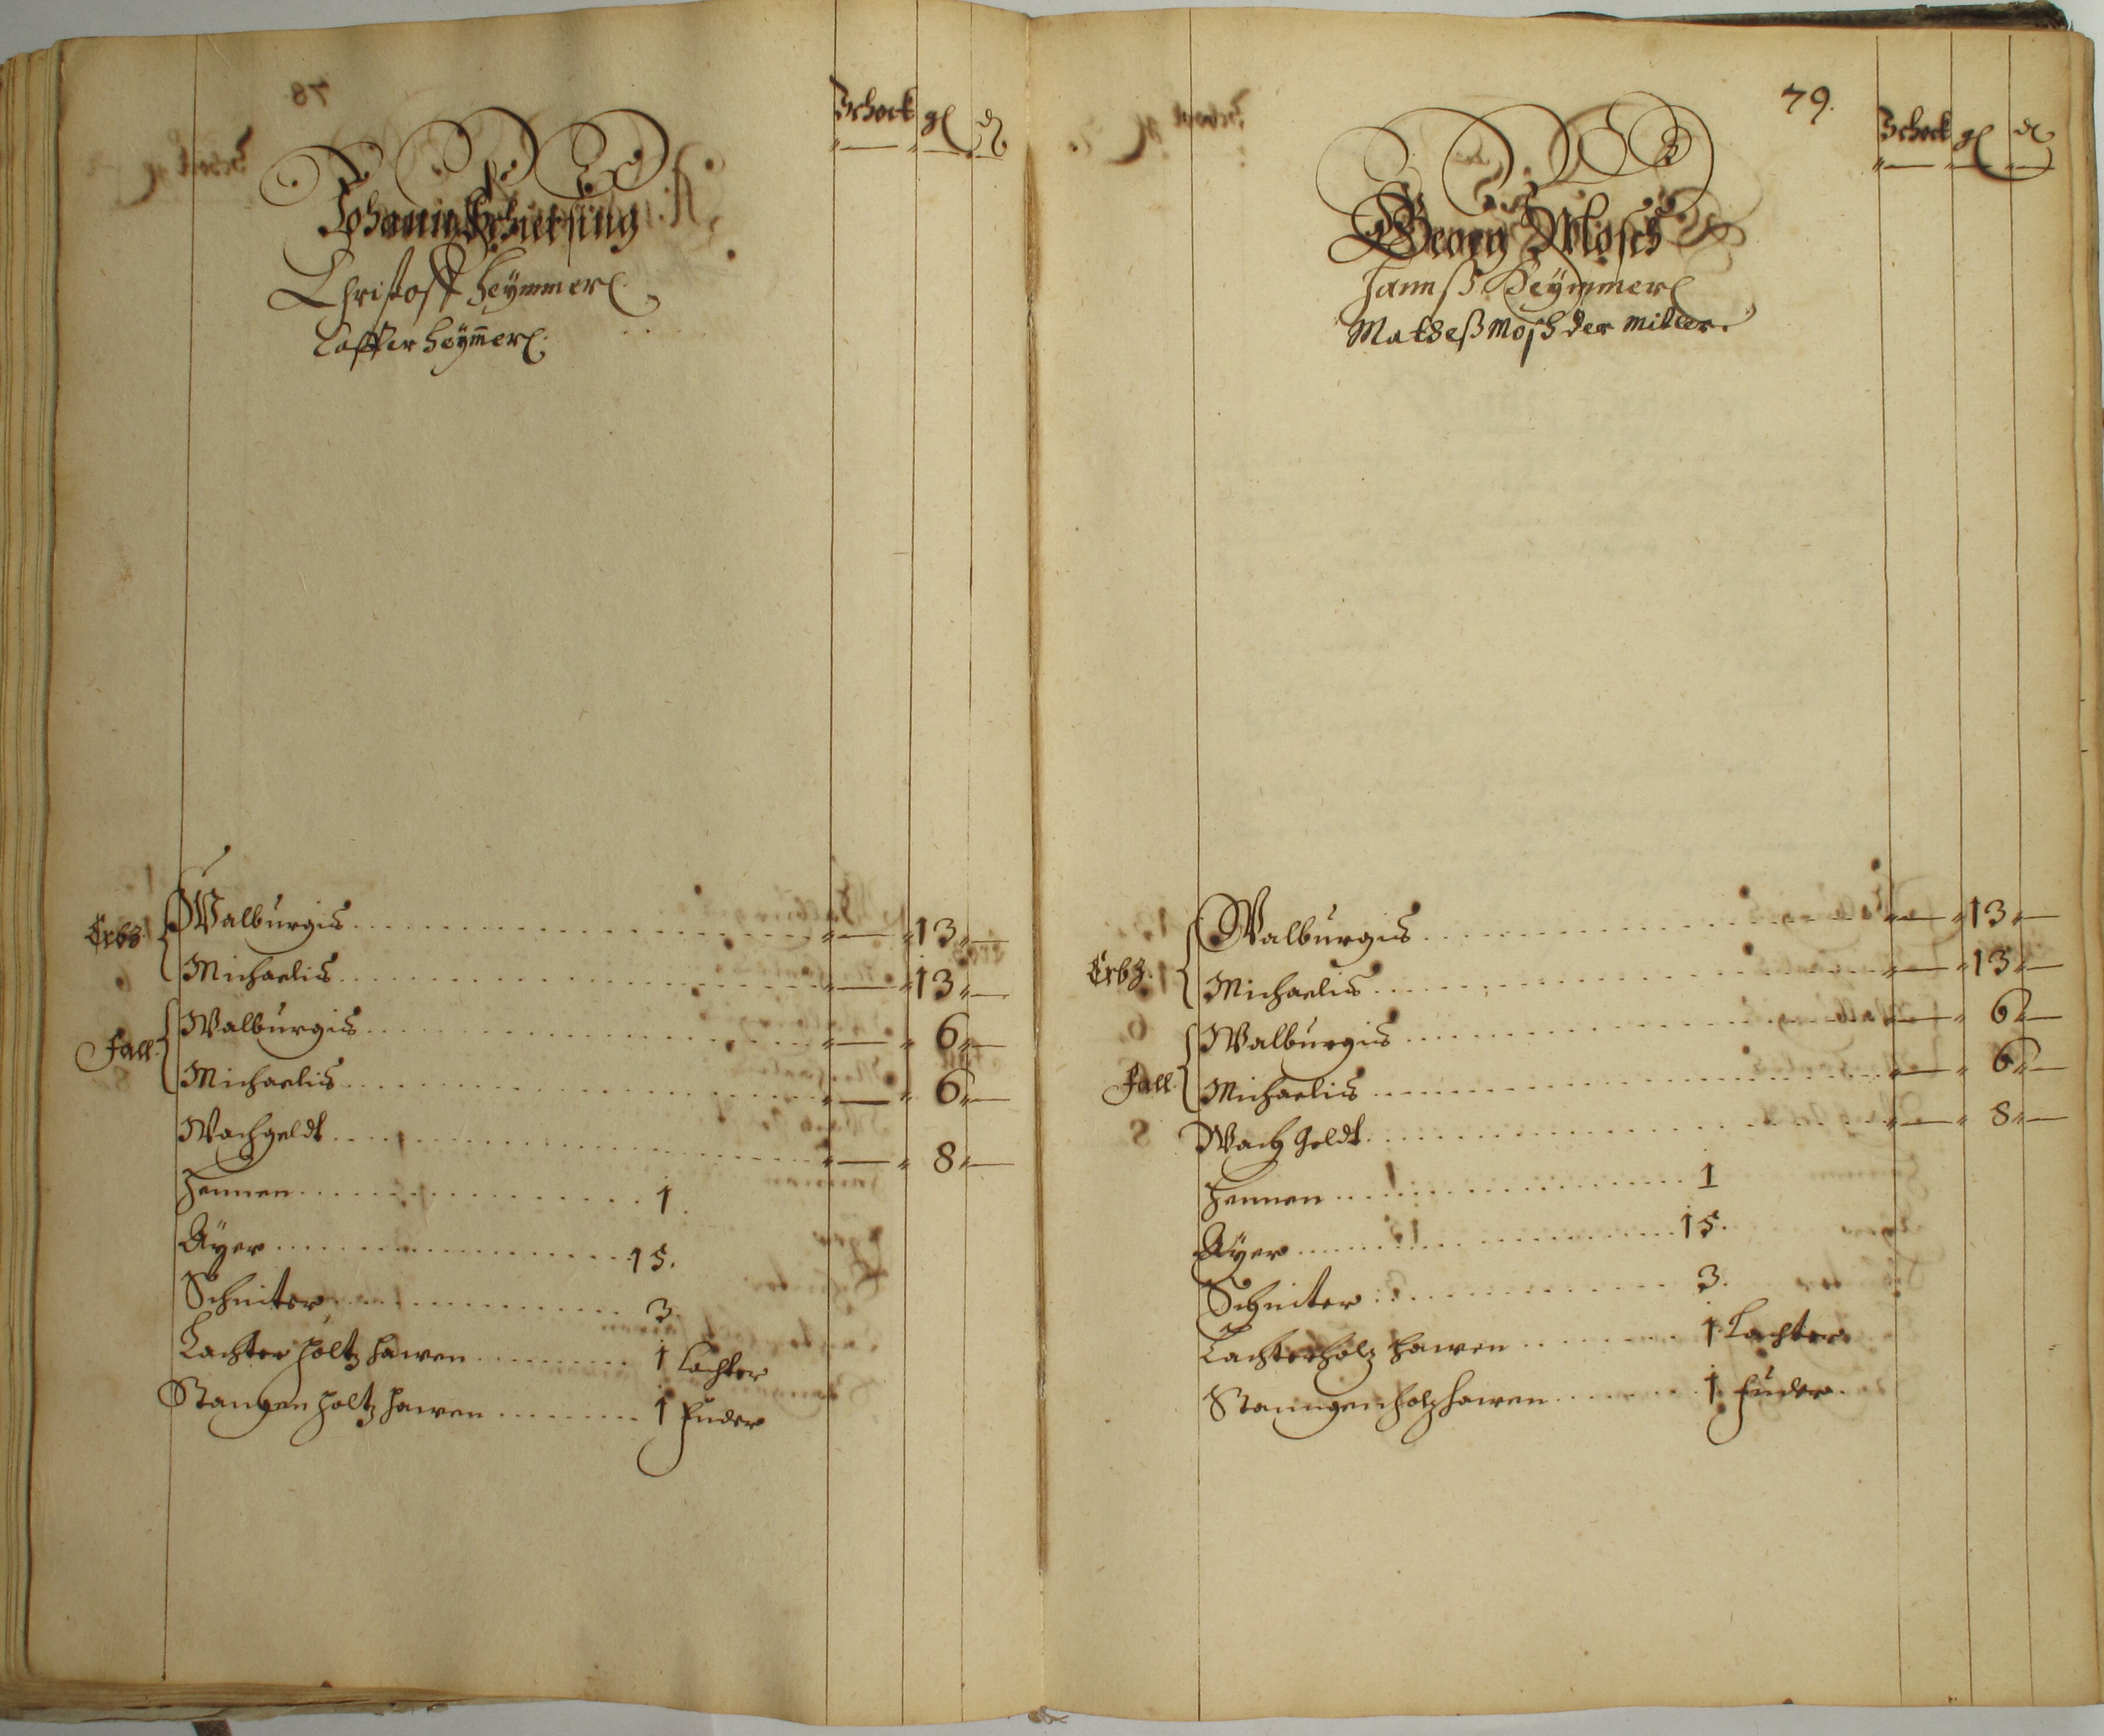 Schock gl ₰
Johann
Christoff Heymmerl
Casper Heym̄erl.
Erbz. Walburgis — 13 —
Michaelis — 13 —
Fall Walburgis — 6 —
Michaelis — 6 —
Wachgeldt — 8 —
Hennen 1.
Ayer 15.
Schniter 3.
Lachter holtz hawen 1 Lachter
Stangen holtz hawen 1 Fuder
79.
Schock gl ₰
Georg Mosch
Hannß Heymmerl
Matheß Mosch der Mitler.
Erbz. Walburgis — 13 —
Michaelis — 13 —
Fall Walburgis — 6 —
Michaelis — 6 —
Wach Geldt — 8 —
Hennen 1
Ayer 15.
Schniter 3.
Lachterholz hawen 1 Lachter
Stanngenholz hawen 1 Fuder.